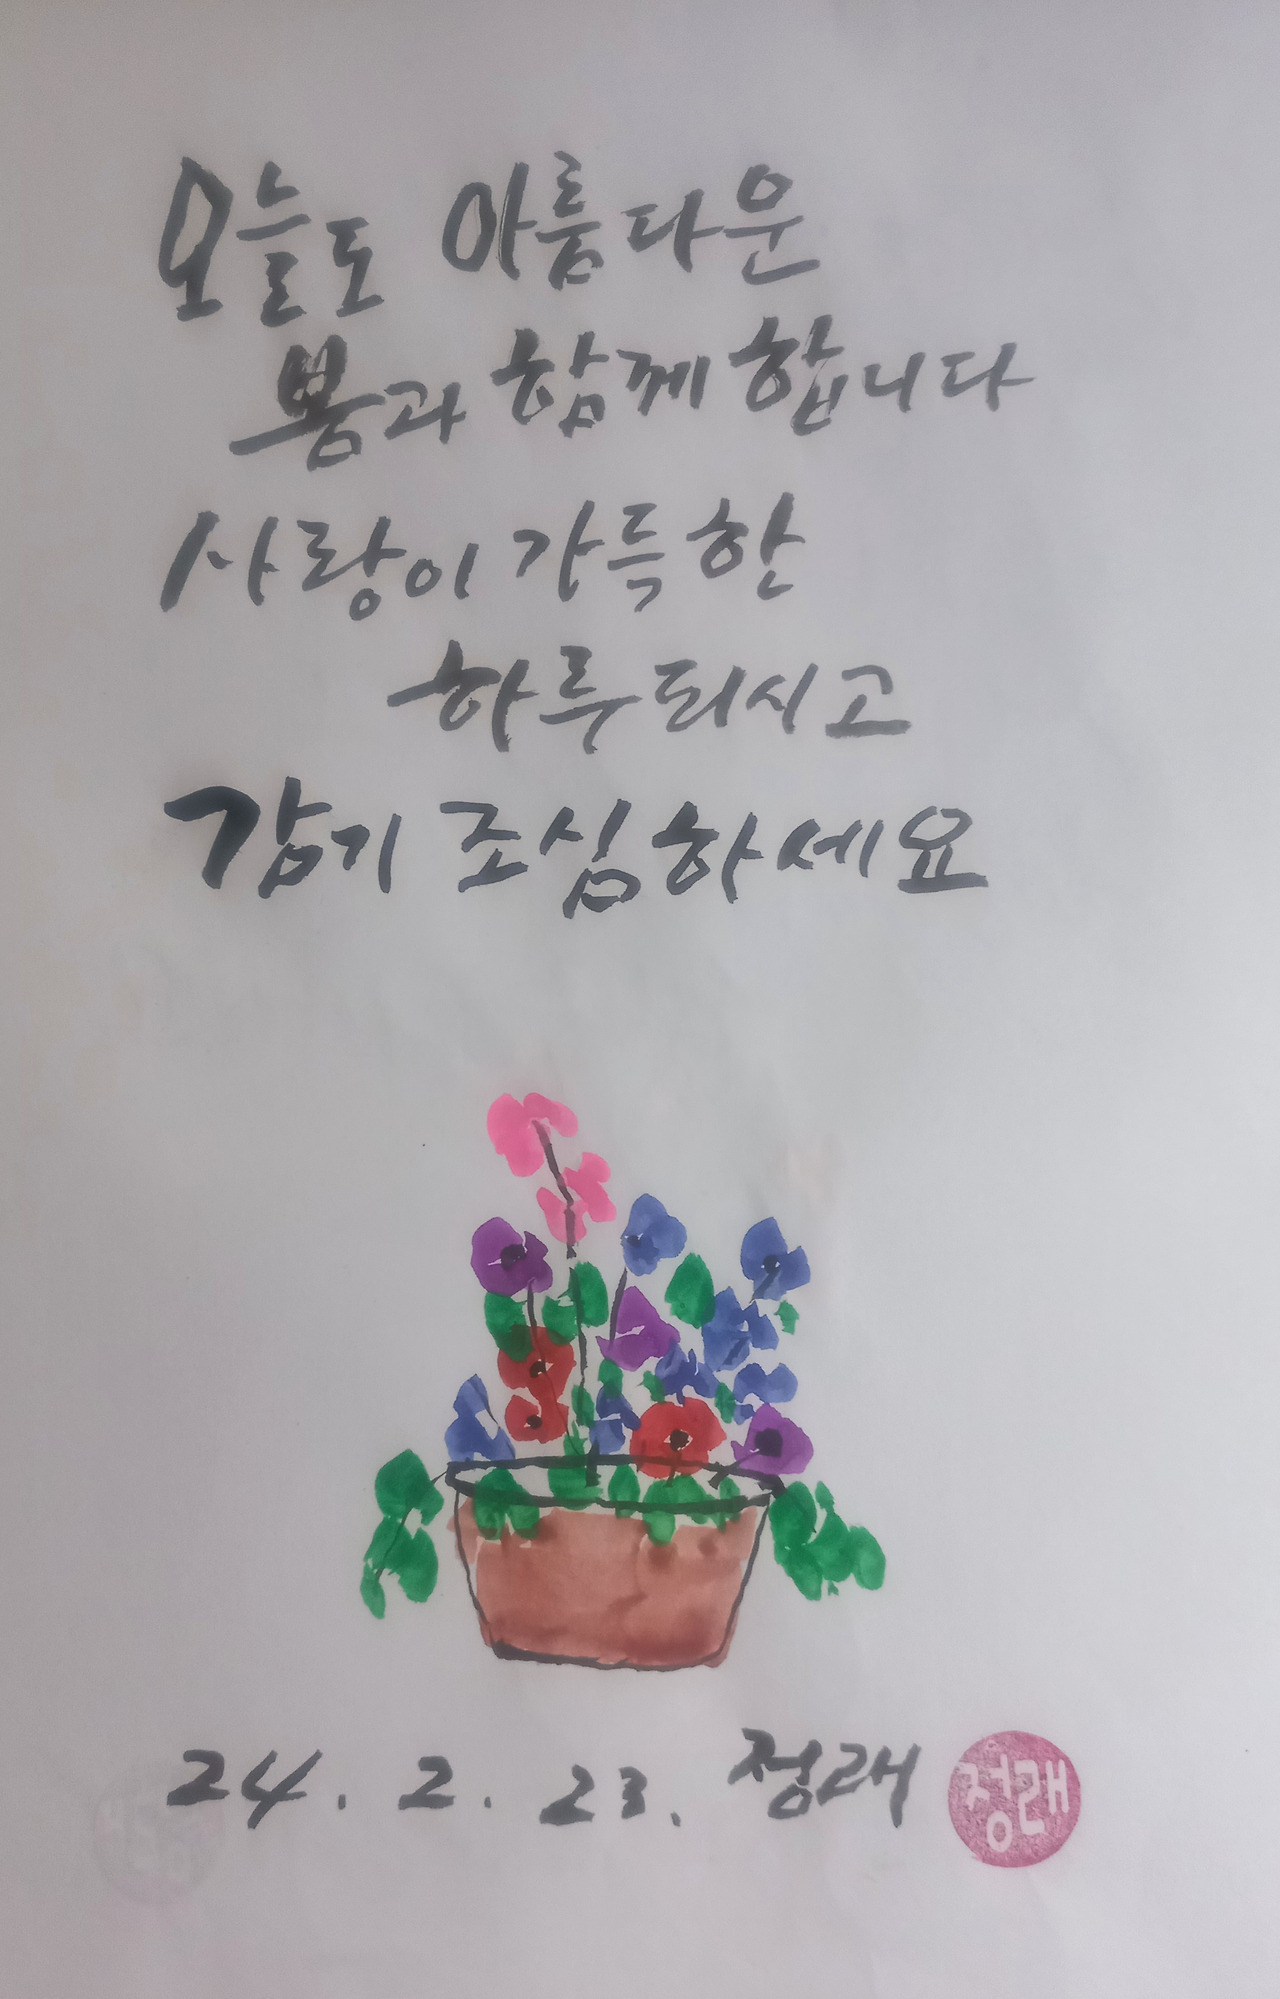 오늘도 아름다운
봄과 함께 합니다
사랑이 가득한
하루 되시고
감기 조심하세요
24. 2. 23. 정래
정래